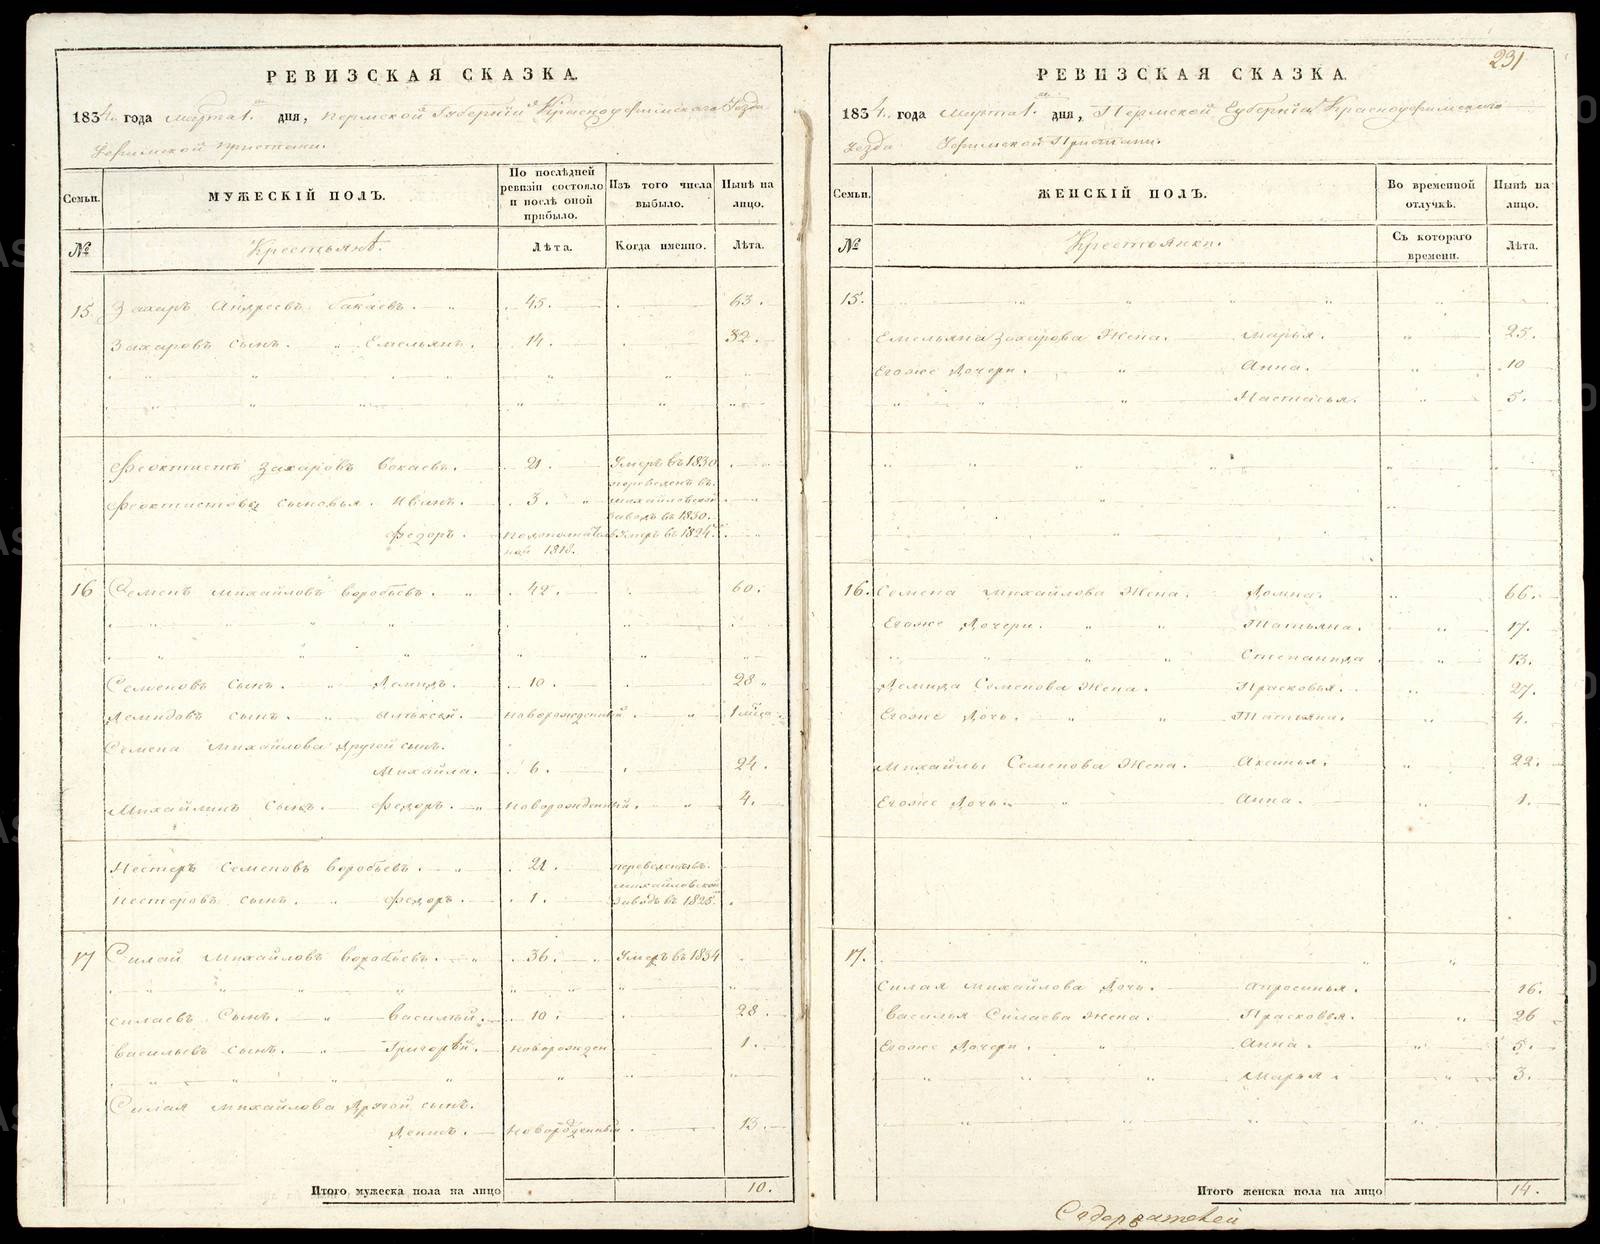 РЕВИЗСКАЯ СКАЗКА.
1834. года марта 1. дня, Пермской Губернiи Красноуфимскаго Уѣзда
Уфимской Пристани.
Семьи.
МУЖЕСКIЙ ПОЛЪ.
По послѣдней ревизiи состояло и послѣ оной прибыло.
Изъ того числа выбыло.
Нынѣ на лицо.
№
Крестьянъ.
Лѣта.
Когда именно.
Лѣта.
15 Захаръ Андреевъ Бакаевъ. 45. 63.
Захаровъ сынъ. Емельянъ. 14. 32.
Феоктистъ Захаровъ Бакаевъ. 21. Умеръ въ 1830.
Феоктистовы сыновья. Иванъ. 3. переведенъ въ Михайловской заводъ въ 1830.
Федоръ. 1818. Умеръ въ 1824.
16 Семенъ Михайловъ Воробьевъ. 42. 60.
Семеновъ сынъ. Демидъ. 10. 28
Демидовъ сынъ. Алексѣй. новорожденный. 1
Семена Михайлова другой сынъ.
Михайла. 6. 24.
Михайлинъ сынъ. Федоръ. новорожденный. 4.
Нестеръ Семеновъ Воробьевъ. 21. переведенъ въ
Михайловской
Несторовъ сынъ. Федоръ. 1. заводъ въ 1825.
17 Силай Михайловъ Воробьевъ. 36. Умеръ въ 1834
Силаевъ Сынъ. Василий. 10. 28.
Васильевъ сынъ. Григорѣй. новорожден 1.
Силая Михайлова другой сынъ.
Денисъ. новорожденный. 13.
Итого мужеска пола на лицо 10.
231
РЕВИЗСКАЯ СКАЗКА.
1834. года марта 1. дня, Пермской Губернiи Красноуфимскаго
Уѣзда Уфимской Пристани.
Семьи.
ЖЕНСКIЙ ПОЛЪ.
Во временной отлучкѣ.
Нынѣ на лицо.
№
Крестьянки.
Съ котораго времени.
Лѣта.
15.
Емельяна Захарова Жена. Марья. 25.
Егоже Дочери. Анна. 10
Настасья. 5.
16. Семена Михайлова Жена. Домна. 66.
Егоже Дочери. Татьяна. 17.
Степанида 13.
Демида Семенова Жена. Прасковья. 27.
Егоже Дочь. Татьяна. 4.
Михайлы Семенова Жена. Аксинья. 22.
Егоже Дочь. Анна. 1.
17.
Силая Михайлова Дочь. Апросинья. 16.
Василья Силаева Жена. Прасковья. 26
Егоже Дочери. Анна. 5.
Марья. 3.
Итого женска пола на лицо 14.